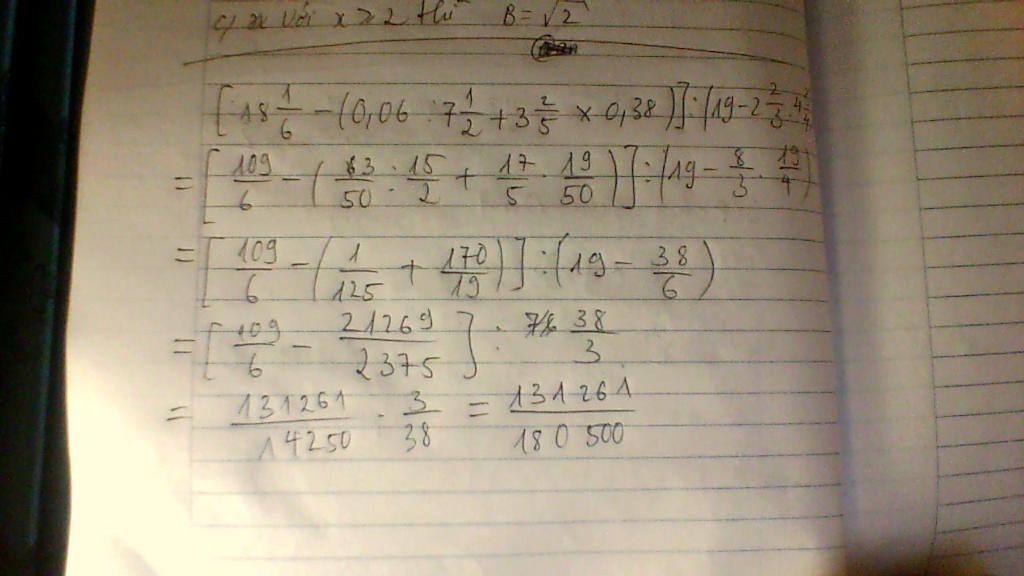 c) với x ≥ 2 thì B = √2
[18 1/6 − (0,06 : 7 1/2 + 3 2/5 × 0,38)] : (19 − 2 2/3 . 4
= [109/6 − (3/50 : 15/2 + 17/5 . 19/50)] : (19 − 8/3 . 19/4)
= [109/6 − (1/125 + 170/19)] : (19 − 38/6)
= [109/6 − 21269/2375] : 38/3
= 131261/14250 . 3/38 = 131261/180500